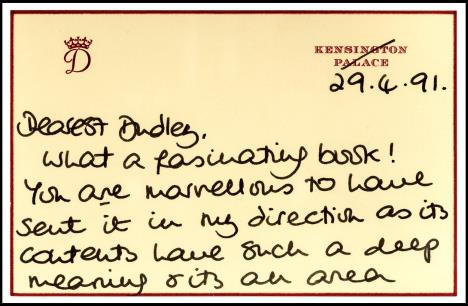 D
KENSINGTON
PALACE
29.4.91.
Dearest Dudley.
What a fascinating book!
You are marvellous to have
sent it in my direction as its
contents have such a deep
meaning & its an area